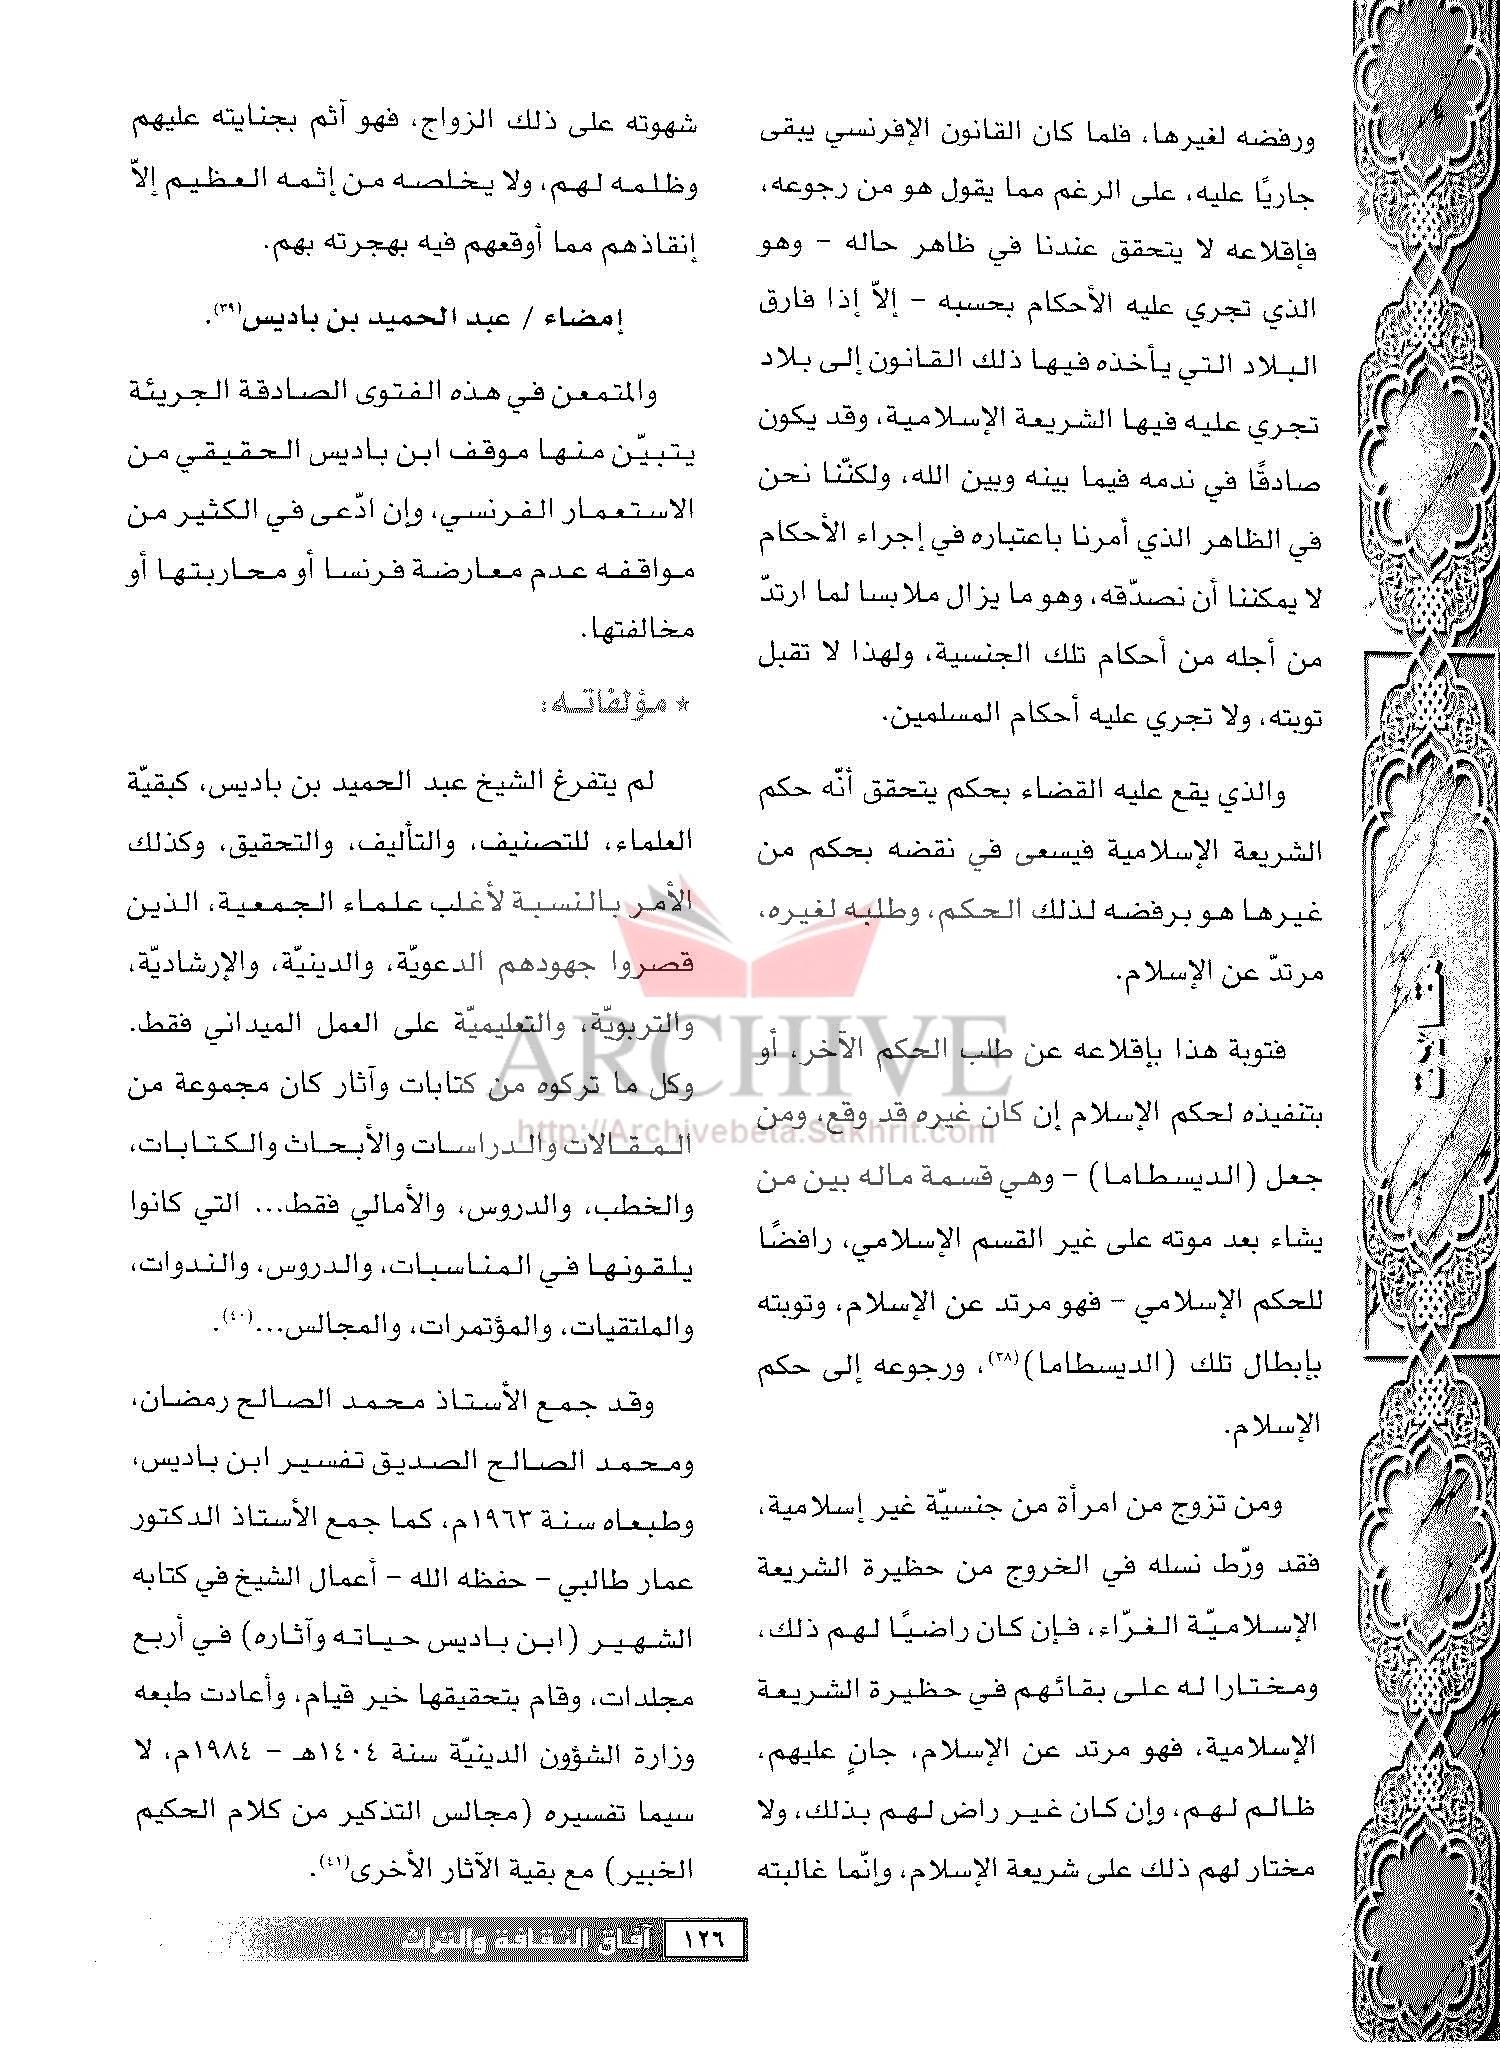 ورفضه لغيرها، فلما كان القانون الإفرنسي يبقى
جاريًا عليه، على الرغم مما يقول هو من رجوعه،
فإقلاعه لا يتحقق عندنا في ظاهر حاله - وهو
الذي تجري عليه الأحكام بحسبه - إلاّ إذا فارق
البلاد التي يأخذه فيها ذلك القانون إلى بلاد
تجري عليه فيها الشريعة الإسلامية، وقد يكون
صادقًا في ندمه فيما بينه وبين الله، ولكنّنا نحن
في الظاهر الذي أمرنا باعتباره في إجراء الأحكام
لا يمكننا أن نصدّقه، وهو ما يزال ملابسا لما ارتدّ
من أجله من أحكام تلك الجنسية، ولهذا لا تقبل
توبته، ولا تجري عليه أحكام المسلمين.
والذي يقع عليه القضاء بحكم يتحقق أنّه حكم
الشريعة الإسلامية فيسعى في نقضه بحكم من
غيرها هو برفضه لذلك الحكم، وطلبه لغيره،
مرتدّ عن الإسلام.
فتوبة هذا بإقلاعه عن طلب الحكم الآخر، أو
بتنفيذه لحكم الإسلام إن كان غيره قد وقع، ومن
جعل (الديسطاما) - وهي قسمة ماله بين من
يشاء بعد موته على غير القسم الإسلامي، رافضًا
للحكم الإسلامي - فهو مرتد عن الإسلام، وتوبته
بإبطال تلك (الديسطاما)(٣٨)، ورجوعه إلى حكم
الإسلام.
ومن تزوج من امرأة من جنسيّة غير إسلامية،
فقد ورّط نسله في الخروج من حظيرة الشريعة
الإسلاميّة الغرّاء، فإن كان راضيًا لهم ذلك،
ومختارا له على بقائهم في حظيرة الشريعة
الإسلامية، فهو مرتد عن الإسلام، جانٍ عليهم،
ظالم لهم، وإن كان غير راض لهم بذلك، ولا
مختار لهم ذلك على شريعة الإسلام، وإنّما غالبته
شهوته على ذلك الزواج، فهو آثم بجنايته عليهم
وظلمه لهم، ولا يخلصه من إثمه العظيم إلاّ
إنقاذهم مما أوقعهم فيه بهجرته بهم.
إمضاء / عبد الحميد بن باديس(٣٩).
والمتمعن في هذه الفتوى الصادقة الجريئة
يتبيّن منها موقف ابن باديس الحقيقي من
الاستعمار الفرنسي، وإن ادّعى في الكثير من
مواقفه عدم معارضة فرنسا أو محاربتها أو
مخالفتها.
* مؤلفاته:
لم يتفرغ الشيخ عبد الحميد بن باديس، كبقيّة
العلماء، للتصنيف، والتأليف، والتحقيق، وكذلك
الأمر بالنسبة لأغلب علماء الجمعية، الذين
قصروا جهودهم الدعويّة، والدينيّة، والإرشاديّة،
والتربويّة، والتعليميّة على العمل الميداني فقط.
وكل ما تركوه من كتابات وآثار كان مجموعة من
المقالات والدراسات والأبحاث والكتابات،
والخطب، والدروس، والأمالي فقط... التي كانوا
يلقونها في المناسبات، والدروس، والندوات،
والملتقيات، والمؤتمرات، والمجالس...(٤٠).
وقد جمع الأستاذ محمد الصالح رمضان،
ومحمد الصالح الصديق تفسير ابن باديس،
وطبعاه سنة ١٩٦٣م، كما جمع الأستاذ الدكتور
عمار طالبي - حفظه الله - أعمال الشيخ في كتابه
الشهير (ابن باديس حياته وآثاره) في أربع
مجلدات، وقام بتحقيقها خير قيام، وأعادت طبعه
وزارة الشؤون الدينيّة سنة ١٤٠٤هـ - ١٩٨٤م، لا
سيما تفسيره (مجالس التذكير من كلام الحكيم
الخبير) مع بقية الآثار الأخرى(٤١).
ARCHIVE
http://Archivebeta.Sakhrit.com
مقالات
١٢٦ آفاق الثقافة والتراث